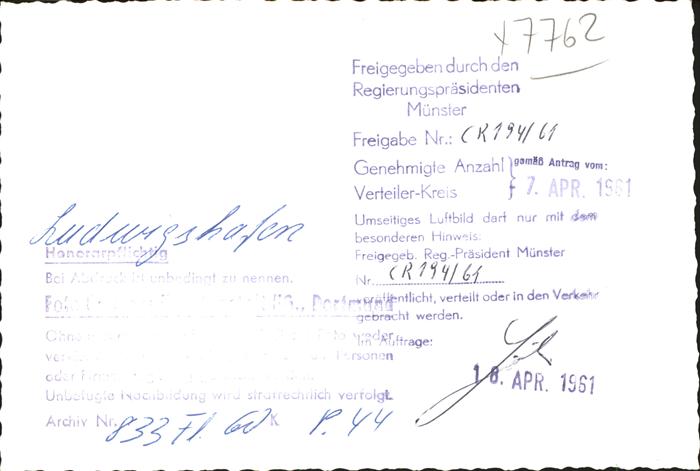 x7762
Freigegeben durch den
Regierungspräsidenten
Münster
Freigabe Nr.: CR194/61
Genehmigte Anzahl } gemäß Antrag vom:
Verteiler-Kreis } 7. APR. 1961
Umseitiges Luftbild darf nur mit dem
besonderen Hinweis:
Freigegeb. Reg.-Präsident Münster
Nr. CR194/61
veröffentlicht, verteilt oder in den Verkehr
gebracht werden.
Im Auftrage:
18. APR. 1961
Ludwigshafen
Honorarpflichtig
Bei Abdruck ist unbedingt zu nennen.
Foto
Dortmund
Ohne
Foto weder
Personen
oder
Unbefugte Nachbildung wird strafrechtlich verfolgt.
Archiv Nr. 833 Fl. 60 K P. 44